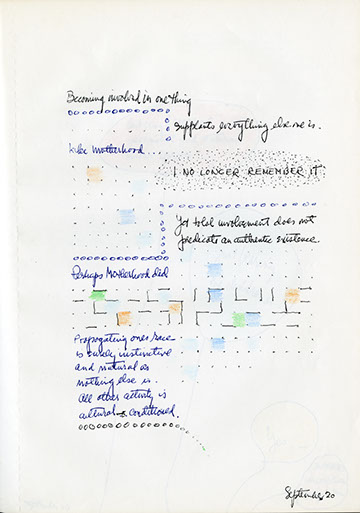 Becoming involved in one thing
supplants everything else one is.
Like Motherhood
I NO LONGER REMEMBER IT
Yet total involvement does not
predicate an authentic existence.
Perhaps Motherhood did
Propogating ones race
is surely instinctive
and natural as
nothing else is.
All other activity is
cultural conditioned.
September 20